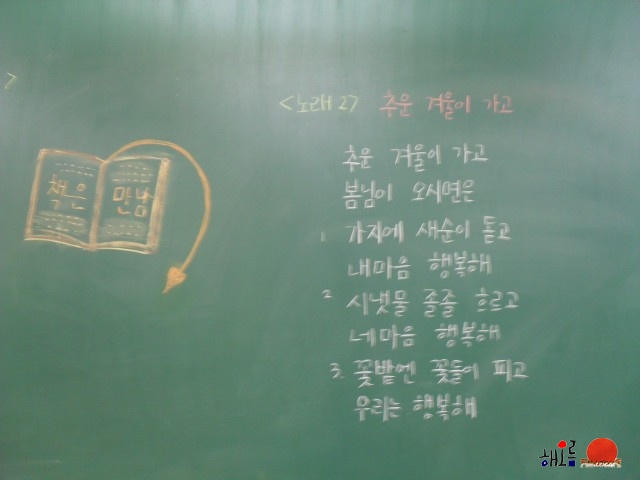 책은 만남
<노래27> 추운 겨울이 가고
추운 겨울이 가고
봄님이 오시면은
1. 가지에 새순이 돋고
내마음 행복해
2 시냇물 졸졸 흐르고
네마음 행복해
3. 꽃밭엔 꽃들이 피고
우리는 행복해
해오름